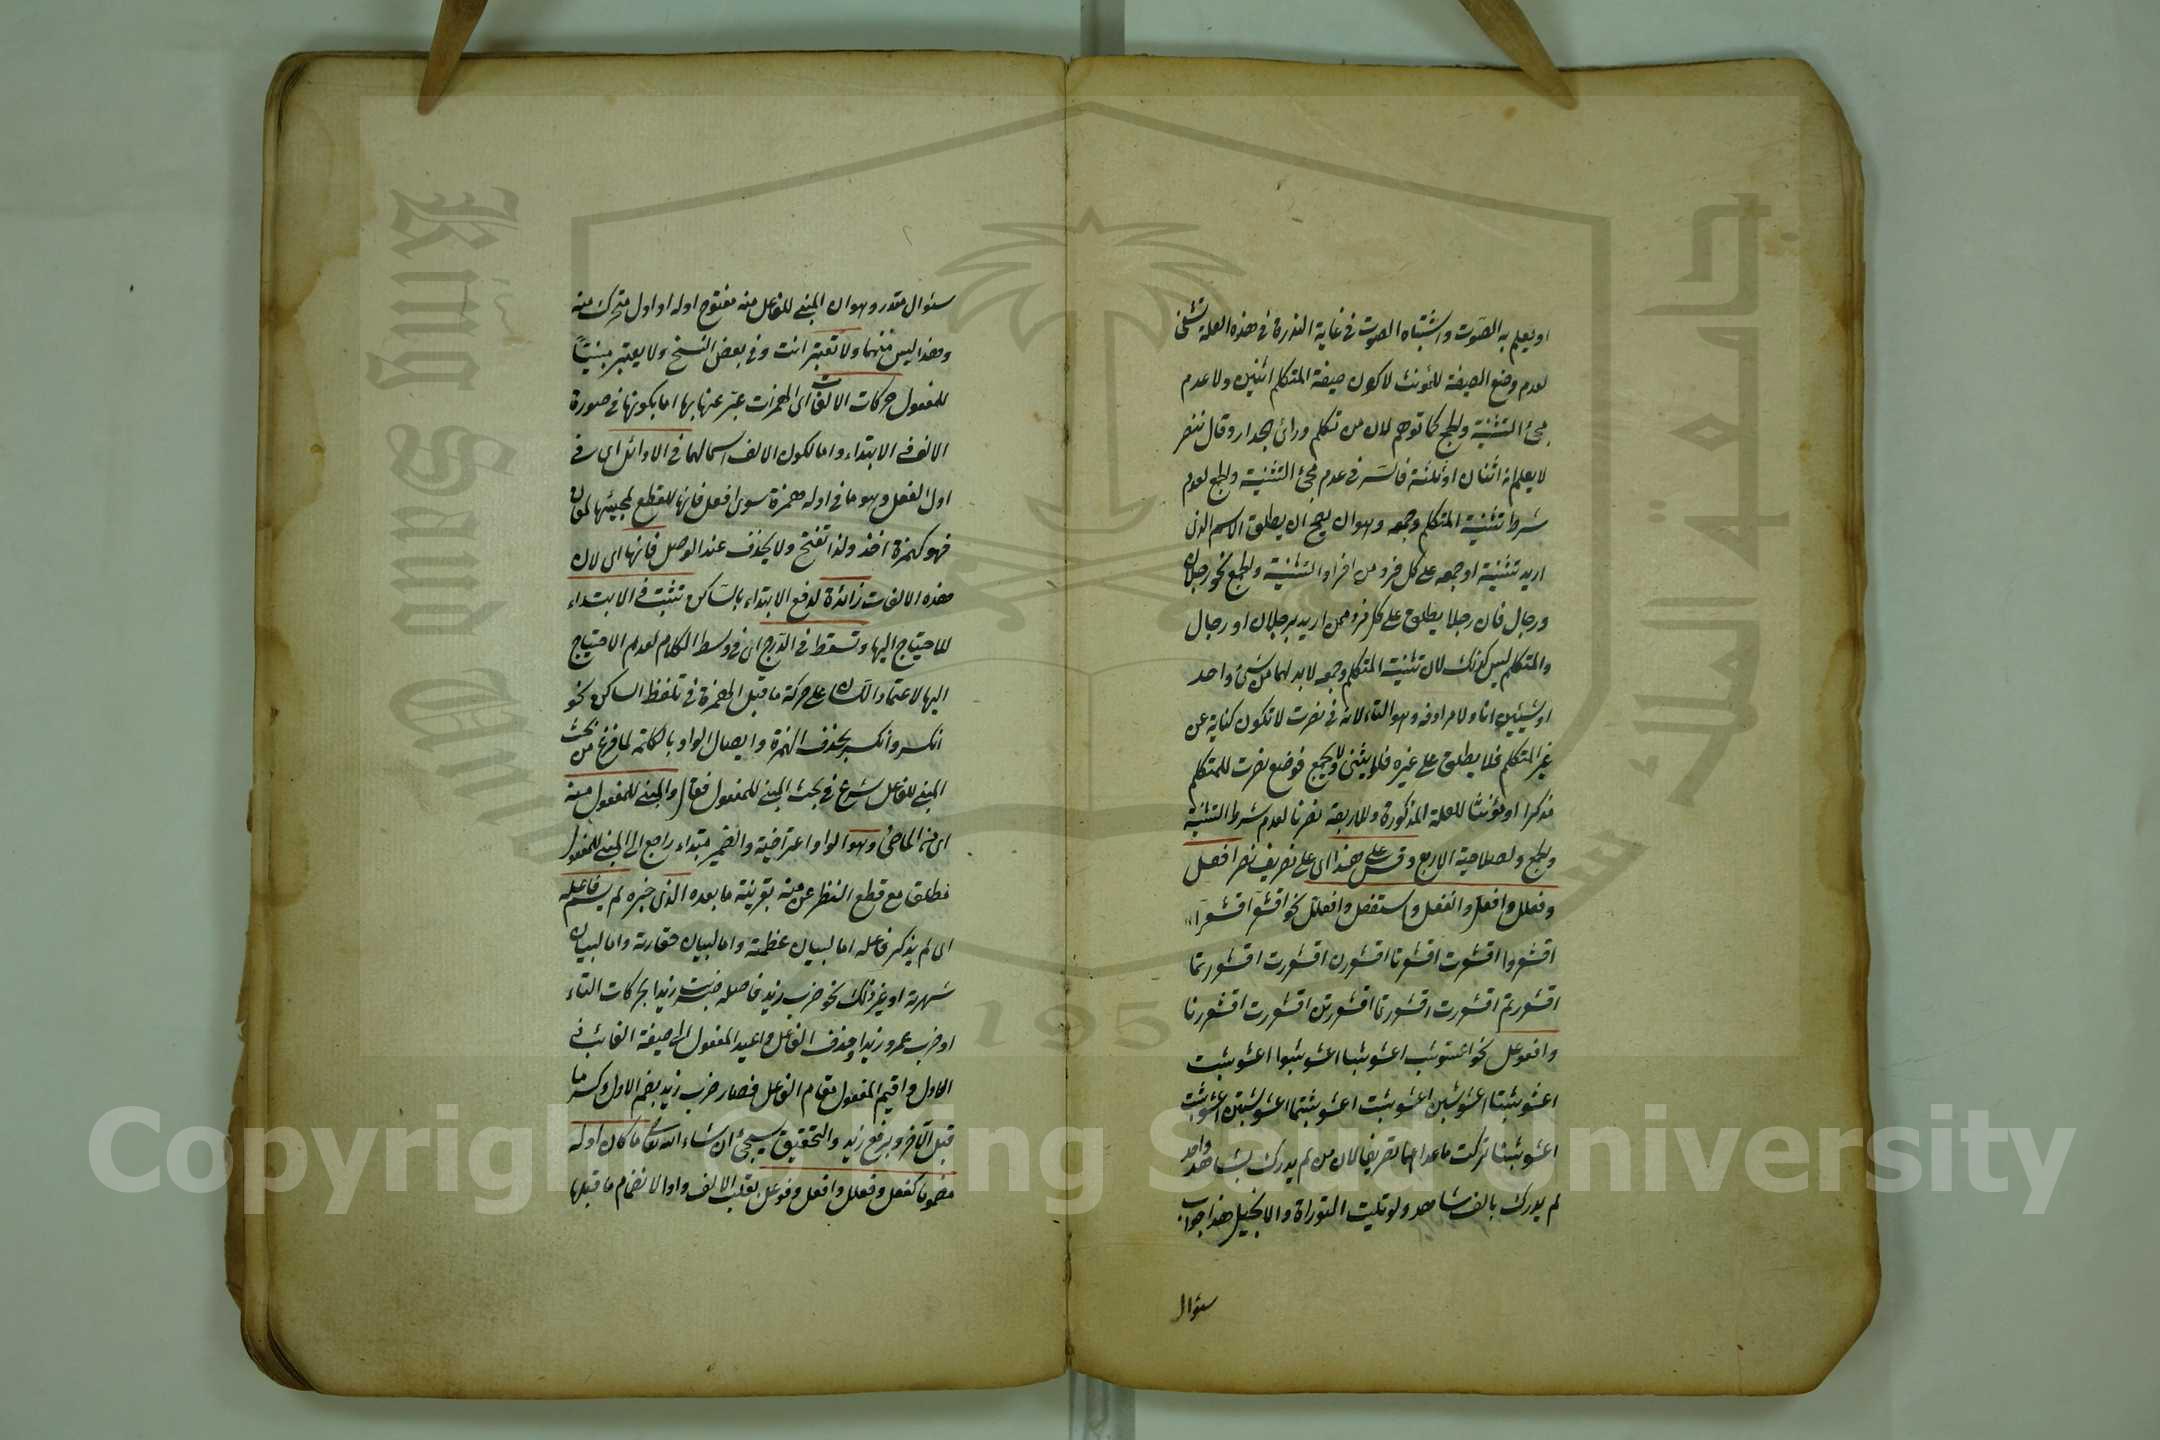 او يعلم به الصوت واشتباه الصوت في غاية الندرة في هذه العلة تشفى
لعدم وضع الصيغة للمؤنث لا كون صيغة المتكلم اثنين ولا عدم
مجئ التثنية والجمع كما توهم لان من تكلم ورائ الجدار وقال ننصر
لا يعلم انه اثنان او ثلثة فالسر في عدم مجئ التثنية والجمع لعدم
شرط تثنية المتكلم وجمعه وهو ان يصح ان يطلق الاسم الذى
اريد تثنية او جمعه على كل فرد من افراد التثنية والجمع نحو رجلان
ورجال فان رجلا يطلق على كل فرد ممن اريد برجلان او رجال
والمتكلم ليس كذلك لان تثنية المتكلم وجمعه لا بد لهما من شئ واحد
او شيئين انا ولا مرادفه وهو التاء لانه في نصرت لا تكون كناية عن
غير المتكلم فلا يطلق على غيره فلا يثنى ولا يجمع فوضع نصرت للمتكلم
مذكرا او مؤنثا للعلة المذكورة والاربعة نصرنا لعدم شرط التثنية
والجمع ولصلاحية الاربع وقس على هذا اى على تصريف نصر افعل
وفعلل وافعل وانفعل واستفعل وافعلل نحو اقشعر اقشعرا
اقشعروا اقشعرت اقشعرتا اقشعررن اقشعررت اقشعررتما
اقشعررتم اقشعررت اقشعررتما اقشعررتن اقشعررت اقشعررنا
وافعوعل نحو اعشوشب اعشوشبا اعشوشبوا اعشوشبت
اعشوشبتا اعشوشبن اعشوشبت اعشوشبتما اعشوشبتن اعشوشبت
اعشوشبنا تركت ما عداهما تصريفا لان من لم يدرك بشاهد واحد
لم يدرك بالف شاهد ولو تليت التوراة والانجيل هذا جواب
سؤال
سؤال مقدر وهو ان المبنى للفاعل منه مفتوح اوله او اول متحرك منه
وهذا ليس منهما ولا تعتبر انت وفي بعض النسخ ولا يعتبر مبنيًّا
للمفعول حركات الالفات اى الهمزات عبّر عنها بها اما بكونها في صورة
الالف في الابتداء واما لكون الالف اسما لها في الاوائل اى في
اول الفعل وهو ما في اوله همزة سوى افعل فانها للقطع لمجيئها لمعان
فهو كهمزة اخذ ولذا تفتح ولا يحذف عند الوصل فانها اى لان
هذه الالفات زائدة لدفع الابتداء بالساكن تثبت في الابتداء
للاحتياج اليها وتسقط في الدرج اى في وسط الكلام لعدم الاحتياج
اليها لاعتماد اللسان على حركة ما قبل الهمزة في تلفظ الساكن نحو
انكسر وانكسر بحذف الهمزة وايصال الواو بالكلمة لما فرغ من بحث
المبنى للفاعل شرع في بحث المبنى للمفعول فقال والمبنى للمفعول منه
اى من الماضى وهو الواو اعتراضية والضمير مبتداء راجع الى المبنى للمفعول
مطلق مع قطع النظر عن منه بقرينة ما بعده الذى خبره لم يسم فاعله
اى لم يذكر فاعله اما لبيان عظمته واما لبيان حقارته واما لبيان
شهرته او غير ذلك نحو ضرب زيد فاصله ضربت زيدا بحركات التاء
او ضرب عمرو زيدا وحذف الفاعل واعيد المفعول الى صيغة الغائب في
الاول واقيم المفعول مقام الفاعل فصار ضرب زيد بضم الاول وكسر ما
قبل الآخر وبرفع زيد والتحقيق سيجئ ان شاء الله تعالى ما كان اوله
مضموما كفعل وفعلل وافعل وفوعل بقلب الالف واوا لانضمام ما قبلها